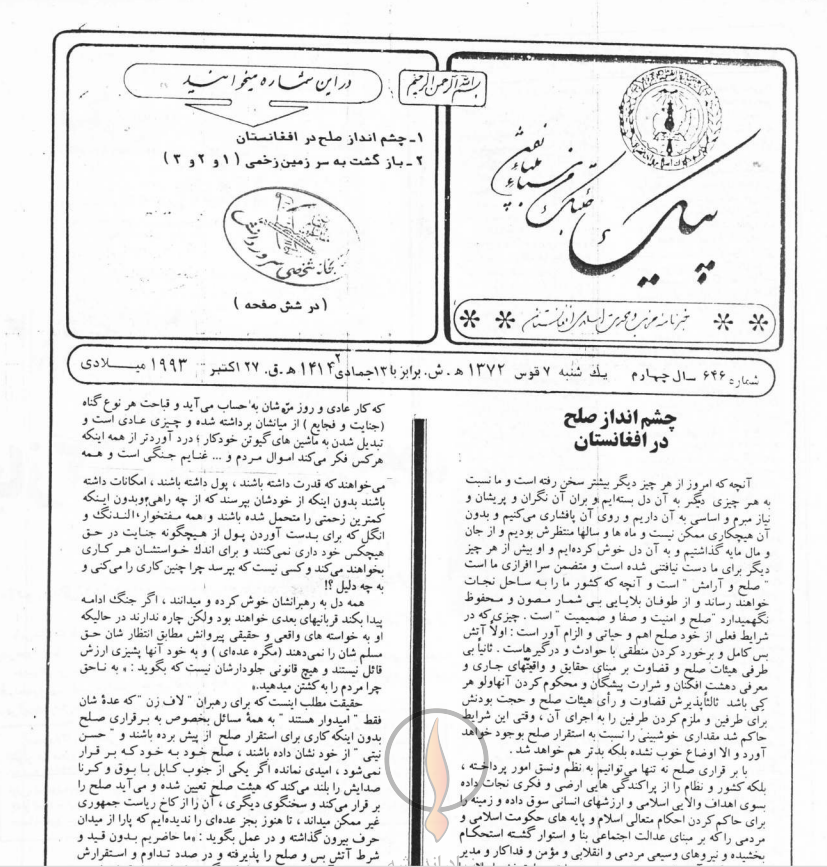 بسم الله الرحمن الرحیم
پیک
خبرنامه حزب وحدت اسلامی افغانستان
در این شماره میخوانید
۱ـ چشم انداز صلح در افغانستان
۲ـ باز گشت به سر زمین زخمی ( ۱ و ۲ و ۳ )
کتابخانه شخصی سرور دانش
( در شش صفحه )
شماره ۶۴۶ سال چهارم یک شنبه ۷ قوس ۱۳۷۲ ه‍ . ش. برابر با ۱۳ جمادی ۲ ۱۴۱۴ ه‍ .ق. ۲۷ اکتبر ۱۹۹۳ میلادی
چشم انداز صلح
در افغانستان
آنچه که امروز از هر چیز دیگر بیشتر سخن رفته است و ما نسبت
به هر چیزی دیگر به آن دل بسته‌ایم و بران آن نگران و پریشان و
نیاز مبرم و اساسی به آن داریم و روی آن پافشاری می‌کنیم و بدون
آن هیچکاری ممکن نیست و ماه ها و سالها منتظرش بودیم و از جان
و مال مایه گذاشتیم و به آن دل خوش کرده‌ایم و او بیش از هر چیز
دیگر برای ما دست نیافتنی شده است و متضمن سرا افرازی ما است
" صلح و آرامش " است و آنچه که کشور ما را به ساحل نجات
خواهند رساند و از طوفان بلایایی بی شمار مصون و محفوظ
نگهمیدارد "صلح و امنیت و صفا و صمیمیت " است . چیزی که در
شرایط فعلی از خود صلح اهم و حیاتی و الزام آور است : اولاً آتش
بس کامل و برخورد کردن منطقی با حوادث و درگیرهاست . ثانیاً بی
طرفی هیئات صلح و قضاوت بر مبنای حقایق و واقیتهای جاری و
معرفی دهشت افکنان و شرارت پیشگان و محکوم کردن آنهاولو هر
کی باشد ثالثاًپذیرش قضاوت و رأی هیئات صلح و حجت بودنش
برای طرفین و ملزم کردن طرفین را به اجرای آن ، وقتی این شرایط
حاکم شد مقداری خوشبینی را نسبت به استقرار صلح بوجود خواهد
آورد و الا اوضاع خوب نشده بلکه بدتر هم خواهد شد .
با بر قراری صلح نه تنها می‌توانیم به نظم ونسق امور پرداخته ،
بلکه کشور و نظام را از پراکندگی هایی ارضی و فکری نجات داده
بسوی اهداف والایی اسلامی و ارزشهای انسانی سوق داده و زمینه را
برای حاکم کردن احکام متعالی اسلام و پایه های حکومت اسلامی و
مردمی را که بر مبنای عدالت اجتماعی بنا و استوار گشته استحکام
بخشیده و نیروهای وسیعی مردمی و انقلابی و مؤمن و فداکار و مدیر
که کار عادی و روز مرّه شان به حساب می‌آید و قباحت هر نوع گناه
(جنایت و فجایع ) از میانشان برداشته شده و چیزی عادی است و
تبدیل شدن به ماشین های گیوتن خودکار ؛ درد آوردتر از همه اینکه
هرکس فکر می‌کند اموال مردم و ... غنایم جنگی است و همه
می‌خواهند که قدرت داشته باشند ، پول داشته باشند ، امکانات داشته
باشند بدون اینکه از خودشان بپرسند که از چه راهی؟وبدون اینکه
کمترین زحمتی را متحمل شده باشند و همه مفتخوار، الندنگ و
انگل که برای بدست آوردن پول از هیچگونه جنایت در حق
هیچکس خود داری نمی‌کنند و برای اندك خواستشان هر کاری
بخواهند می‌کند و کسی نیست که بپرسد چرا چنین کاری را می‌کنی و
به چه دلیل ؟!
همه دل به رهبرانشان خوش کرده و میدانند ، اگر جنگ ادامه
پیدا بکند قربانیهای بعدی خواهند بود ولکن چاره ندارند در حالیکه
او به خواسته های واقعی و حقیقی پیروانش مطابق انتظار شان حق
مسلم شان را نمی‌دهند (مگره عده‌ای ) و به خود آنها پشیزی ارزش
قائل نیستند و هیچ قانونی جلودارشان نیست که بگوید : « به ناحق
چرا مردم را به کشتن میدهید.»
حقیقت مطلب اینست که برای رهبران " لاف زن "که عدهٔ شان
فقط " امیدوار هستند " به همهٔ مسائل بخصوص به برقراری صلح
بدون اینکه کاری برای استقرار صلح از پیش برده باشند و " حسن
نیتی " از خود نشان داده باشند ، صلح خود به خود که بر قرار
نمی‌شود ، امیدی نمانده اگر یکی از جنوب کابل با بوق و کرنا
صدایش را بلند می‌کند که هیئت صلح تعیین شده و می‌آید صلح را
بر قرار می‌کند و سخنگوی دیگری ، آن را از کاخ ریاست جمهوری
غیر ممکن میداند ، تا هنوز بجز عده‌ای را ندیده‌ایم که پارا از میدان
حرف بیرون گذاشته و در عمل بگوید : «ما حاضریم بدون قید و
شرط آتش بس و صلح را پذیرفته و در صدد تداوم و استقرارش